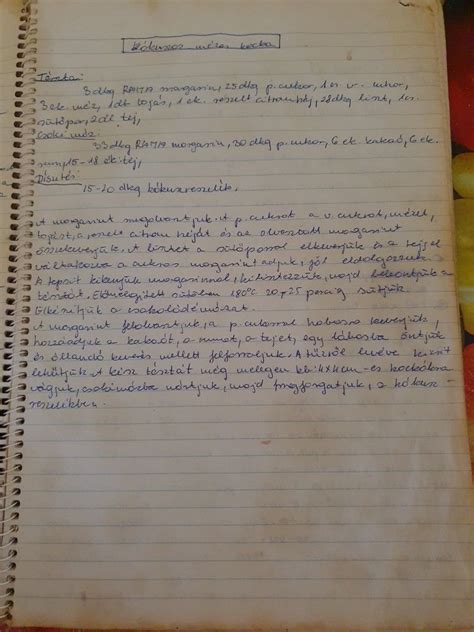 Kókuszos mézes kocka
Tészta:
3 dkg RAMA margarin, 25 dkg p.cukor, 1 cs. v. cukor,
3 ek. méz, 1 db tojás, 1 ek. reszelt citromhéj, 28 dkg liszt, 1 cs.
sütőpor, 2 dl tej,
Csoki máz:
33 dkg RAMA margarin, 30 dkg p.cukor, 6 ek. kakaó, 6 ek.
rum, 15-18 ek tej,
Díszítés:
15-20 dkg kókuszreszelék,
A margarint megolvasztjuk. A p.cukrot a v.cukrot, mézet,
tojást, a reszelt citrom héját és az olvasztott margarint
összekeverjük. A lisztet a sütőporral elkeverjük és a tejjel
váltakozva a cukros margarinhoz adjuk, jól eldolgozzuk.
A tepsit kikenjük margarinnal, kilisztezzük, majd beleöntjük a
tésztát. Előmelegített sütőben 180°C 20-25 percig sütjük.
Elkészítjük a csokoládémázat.
A margarint felolvasztjuk, a p.cukorral habosra keverjük,
hozzáadjuk a kakaót, a rumot, a tejet, egy lábosba öntjük
és állandó keverés mellett felforraljuk. A tűzről levéve kicsit
lehűtjük. A kész tésztát még melegen kb. 4x4 cm-es kockákra
vágjuk, csokimázba mártjuk, majd megforgatjuk, a kókusz-
reszelékben.